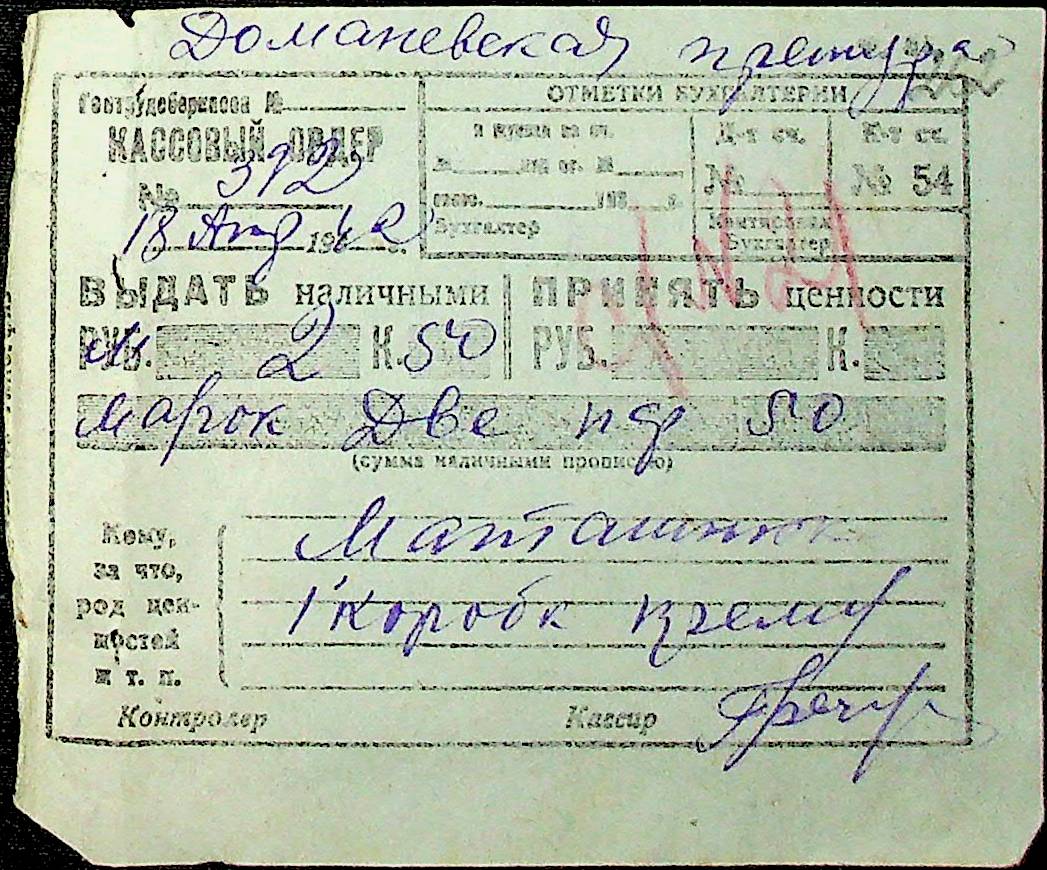 Доманевская претура
Гострудсберкасса №
КАССОВЫЙ ОРДЕР
№ 392
18 Апр 194
ОТМЕТКИ БУХГАЛТЕРИИ
Бухгалтер
Д-т сч.
№
К-т сч.
№ 54
Контировал
Бухгалтер
ВЫДАТЬ наличными
РУБ. 2 К. 50
ПРИНЯТЬ ценности
РУБ. К.
марок Две пф 50
(сумма наличными прописью)
Кому,
за что,
род цен-
ностей
и т. п.
1 коробк крему
Контролер
Кассир